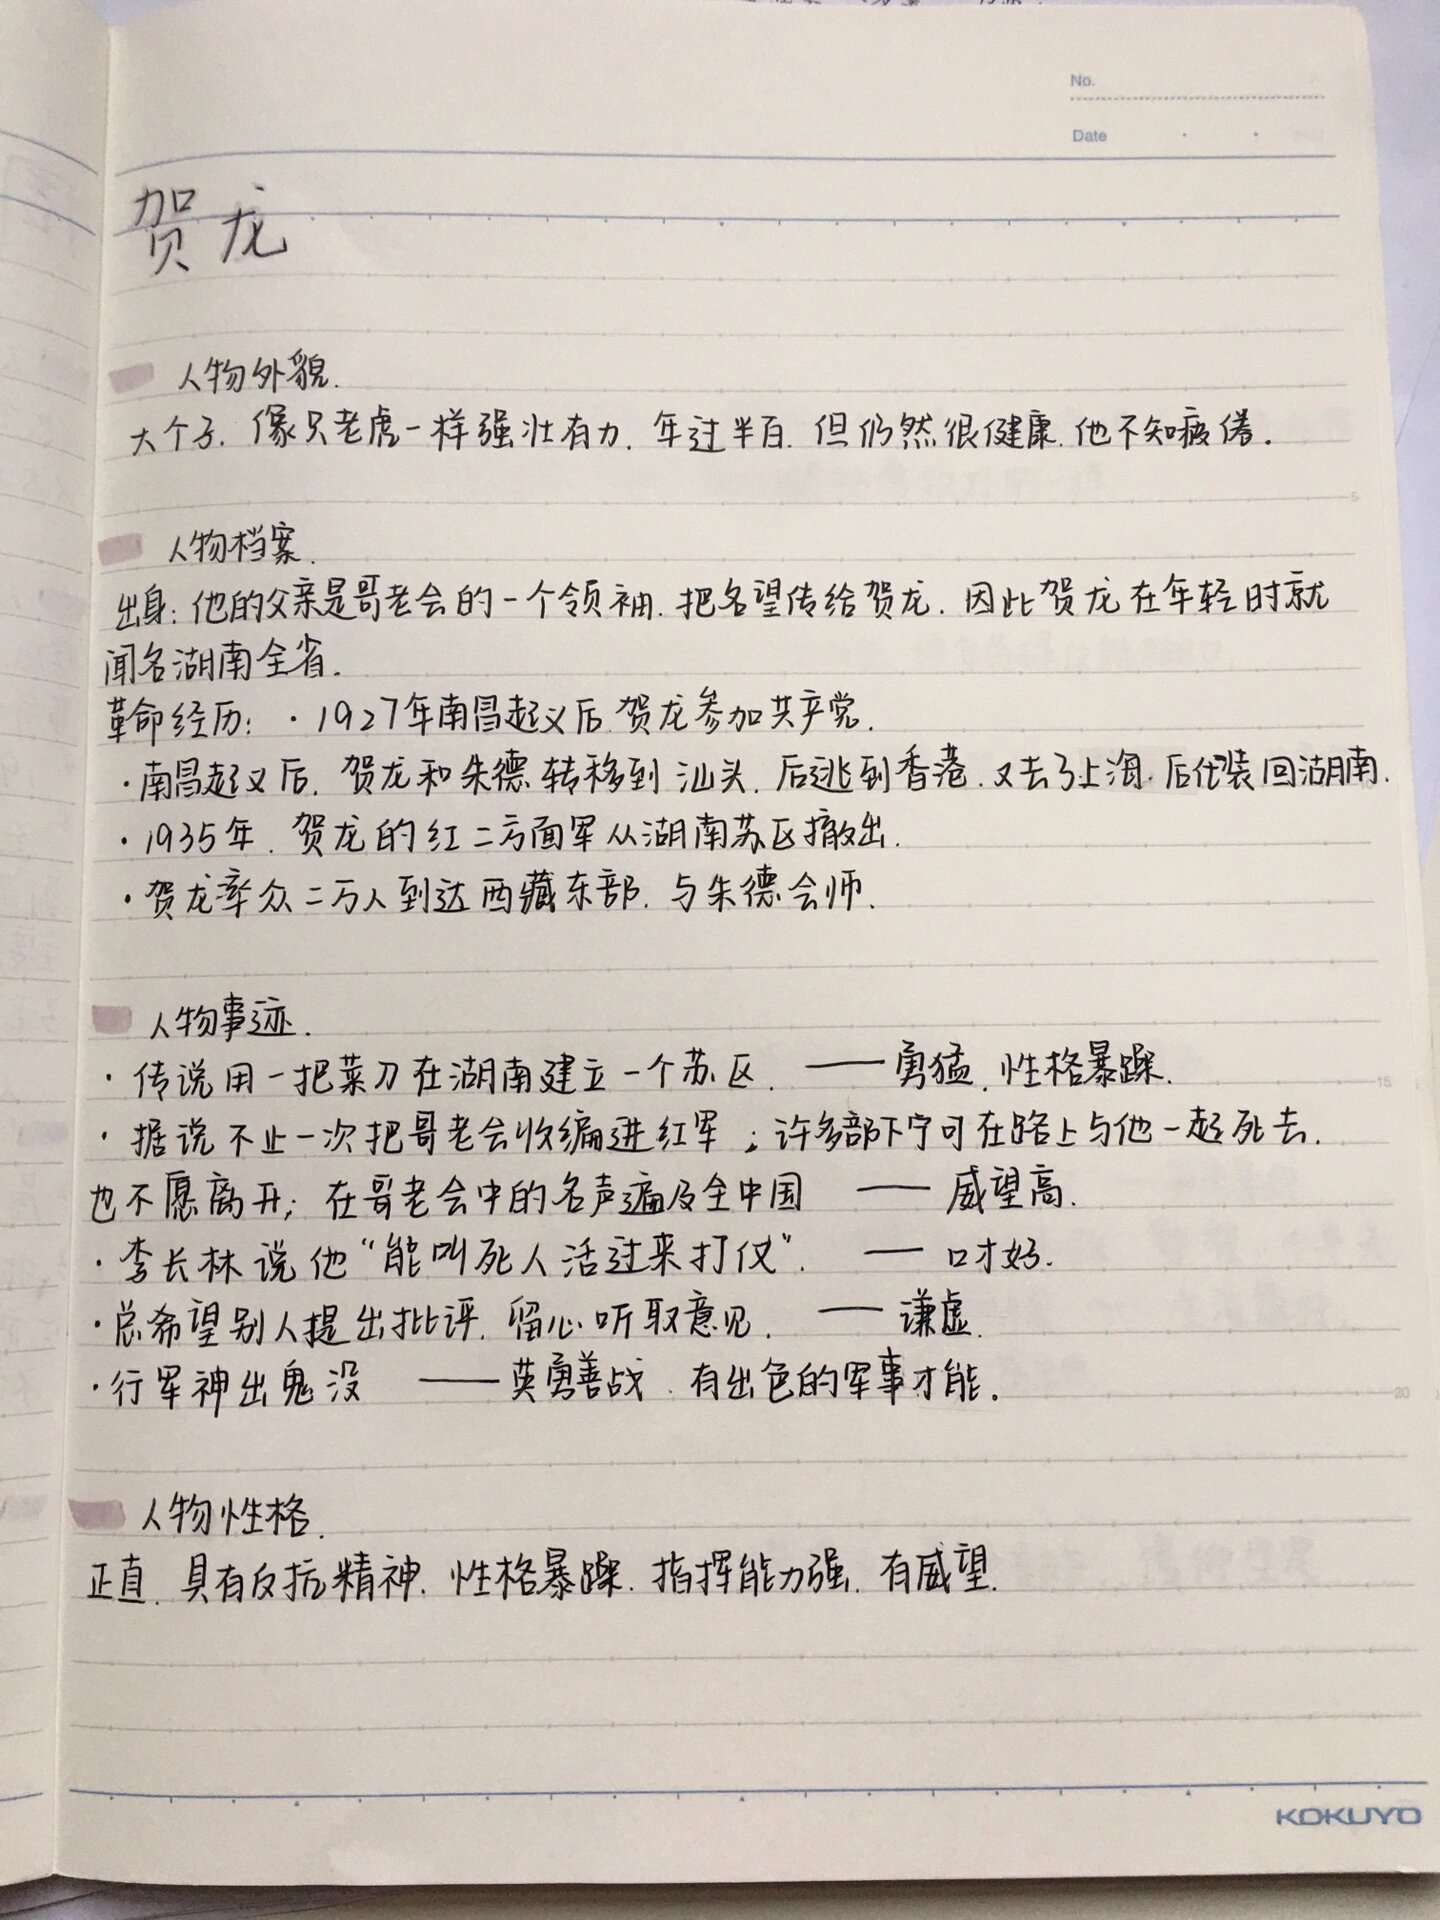 No.
Date
贺龙
人物外貌.
大个子. 像只老虎一样强壮有力. 年过半百. 但仍然很健康. 他不知疲倦.
5
人物档案.
出身: 他的父亲是哥老会的一个领袖. 把名望传给贺龙. 因此贺龙在年轻时就
闻名湖南全省.
革命经历: · 1927年南昌起义后. 贺龙参加共产党.
· 南昌起义后. 贺龙和朱德转移到汕头. 后逃到香港. 又去了上海. 后化装回湖南.
· 1935年. 贺龙的红二方面军从湖南苏区撤出.
· 贺龙率众二万人到达西藏东部. 与朱德会师.
人物事迹.
· 传说用一把菜刀在湖南建立一个苏区. —— 勇猛. 性格暴躁.
15
· 据说不止一次把哥老会收编进红军; 许多部下宁可在路上与他一起死去.
也不愿离开; 在哥老会中的名声遍及全中国 —— 威望高.
· 李长林说他“能叫死人活过来打仗”. —— 口才好.
· 总希望别人提出批评. 留心听取意见. —— 谦虚.
· 行军神出鬼没 —— 英勇善战. 有出色的军事才能.
20
人物性格.
正直. 具有反抗精神. 性格暴躁. 指挥能力强. 有威望.
KOKUYO